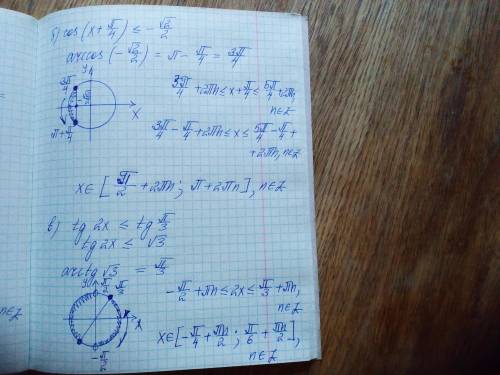 б) cos(x + π/4) ≤ -√2/2
arccos(-√2/2) = π - π/4 = 3π/4
y
3π/4
-√2/2
x
π+π/4
3π/4 + 2πn ≤ x + π/4 ≤ 5π/4 + 2πn,
n∈Z
3π/4 - π/4 + 2πn ≤ x ≤ 5π/4 - π/4 +
+ 2πn, n∈Z
x∈[π/2 + 2πn; π + 2πn], n∈Z
в) tg 2x ≤ tg π/3
tg 2x ≤ √3
arctg √3 = π/3
y π/2 π/3
x
-π/2
-π/2 + πn ≤ 2x ≤ π/3 + πn,
n∈Z
x∈[-π/4 + πn/2; π/6 + πn/2],
n∈Z
n∈Z